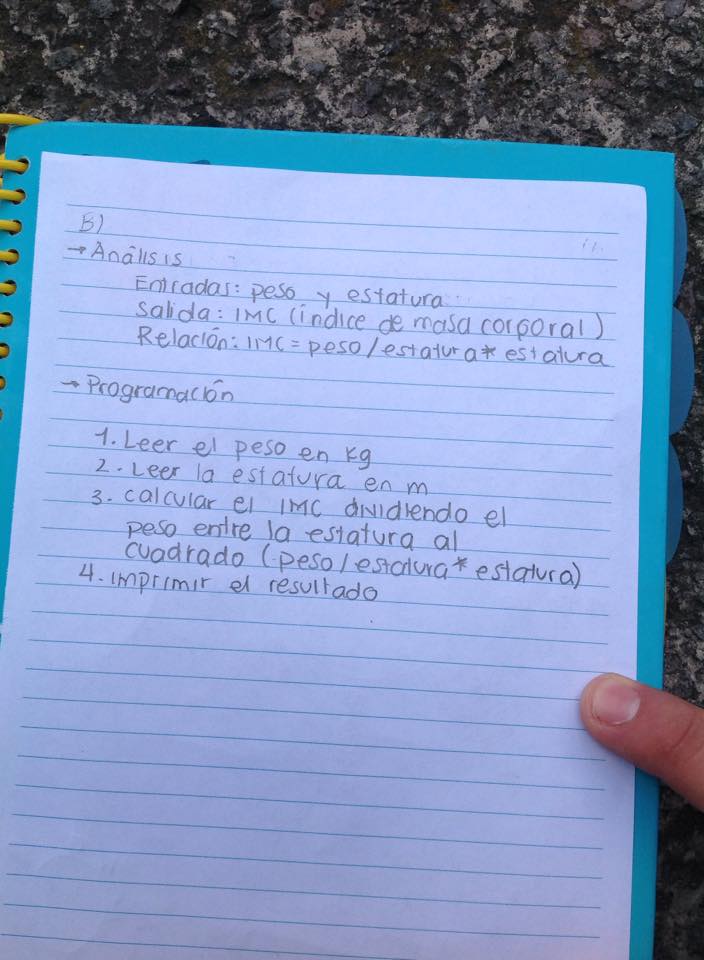 B)
→ Análisis
Entradas: peso y estatura
Salida: IMC (índice de masa corporal)
Relación: IMC = peso/estatura* estatura
→ Programación
1. Leer el peso en kg
2. Leer la estatura en m
3. calcular el IMC dividiendo el
peso entre la estatura al
cuadrado (peso/estatura* estatura)
4. imprimir el resultado